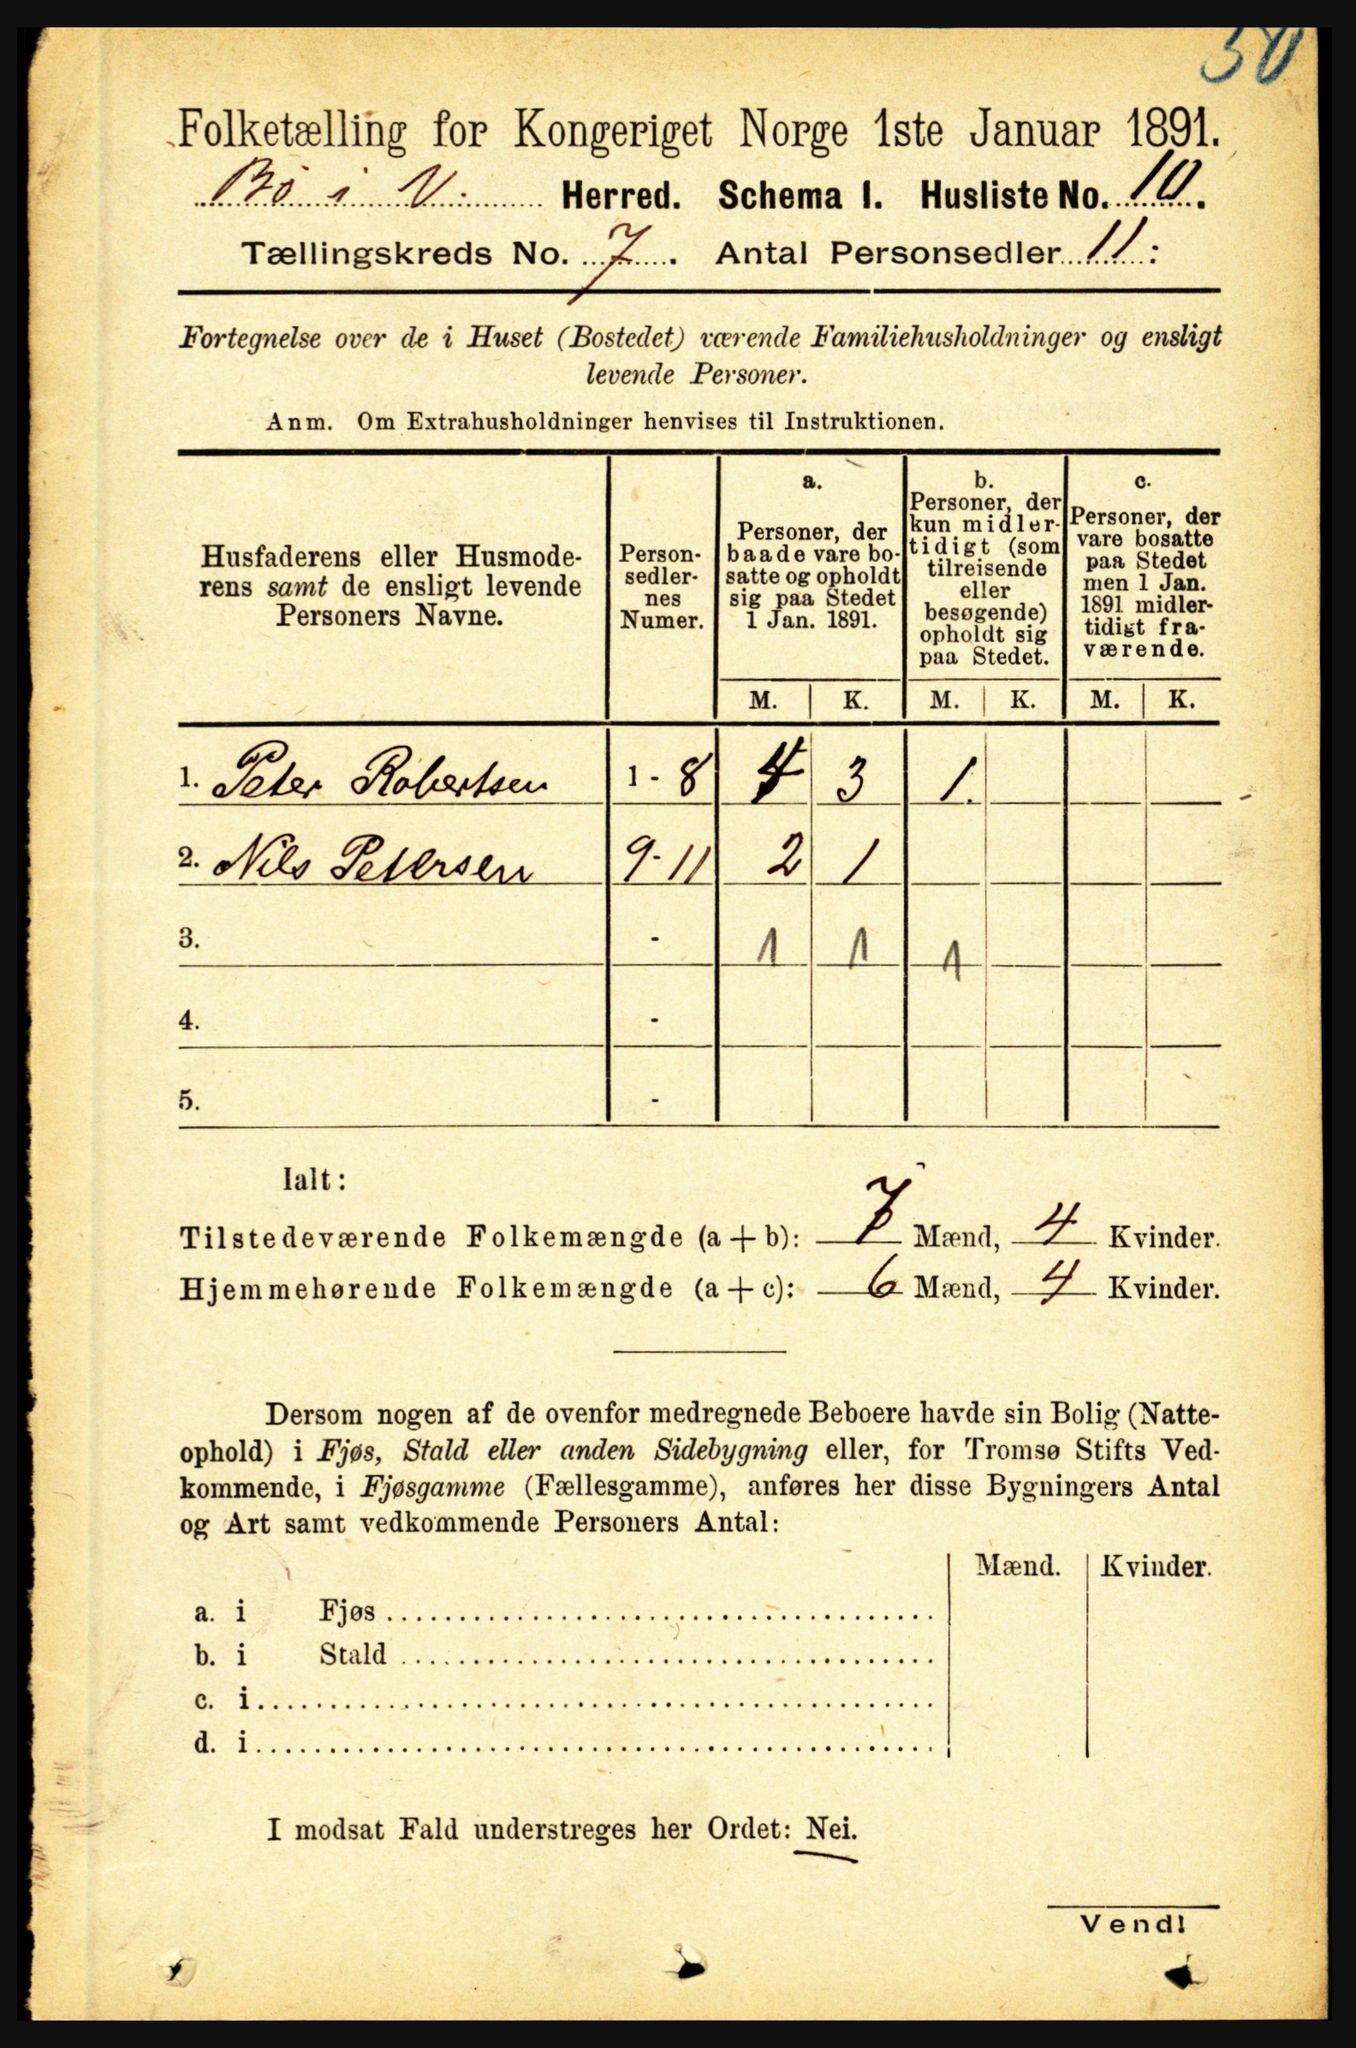 50
Folketælling for Kongeriget Norge 1ste Januar 1891.
Bø i V. Herred. Schema I. Husliste No. 10.
Tællingskreds No. 7. Antal Personsedler 11:
Fortegnelse over de i Huset (Bostedet) værende Familiehusholdninger og ensligt
levende Personer.
Anm. Om Extrahusholdninger henvises til Instruktionen.
Husfaderens eller Husmode-
rens samt de ensligt levende
Personers Navne.
Person-
sedler-
nes
Numer.
a.
Personer, der
baade vare bo-
satte og opholdt
sig paa Stedet
1 Jan. 1891.
b.
Personer, der
kun midler-
tidigt (som
tilreisende
eller
besøgende)
opholdt sig
paa Stedet.
c.
Personer, der
vare bosatte
paa Stedet
men 1 Jan.
1891 midler-
tidigt fra-
værende.
M. K. M. K. M. K.
1. Peter Robertsen 1 - 8 4 3 1.
2. Nils Petersen 9-11 2 1
3. - 1 1 1
4. -
5. -
Ialt:
Tilstedeværende Folkemængde (a + b): 7 Mænd, 4 Kvinder.
Hjemmehørende Folkemængde (a + c): 6 Mænd, 4 Kvinder.
Dersom nogen af de ovenfor medregnede Beboere havde sin Bolig (Natte-
ophold) i Fjøs, Stald eller anden Sidebygning eller, for Tromsø Stifts Ved-
kommende, i Fjøsgamme (Fællesgamme), anføres her disse Bygningers Antal
og Art samt vedkommende Personers Antal:
Mænd. Kvinder.
a. i Fjøs
b. i Stald
c. i
d. i
I modsat Fald understreges her Ordet: Nei.
Vend!